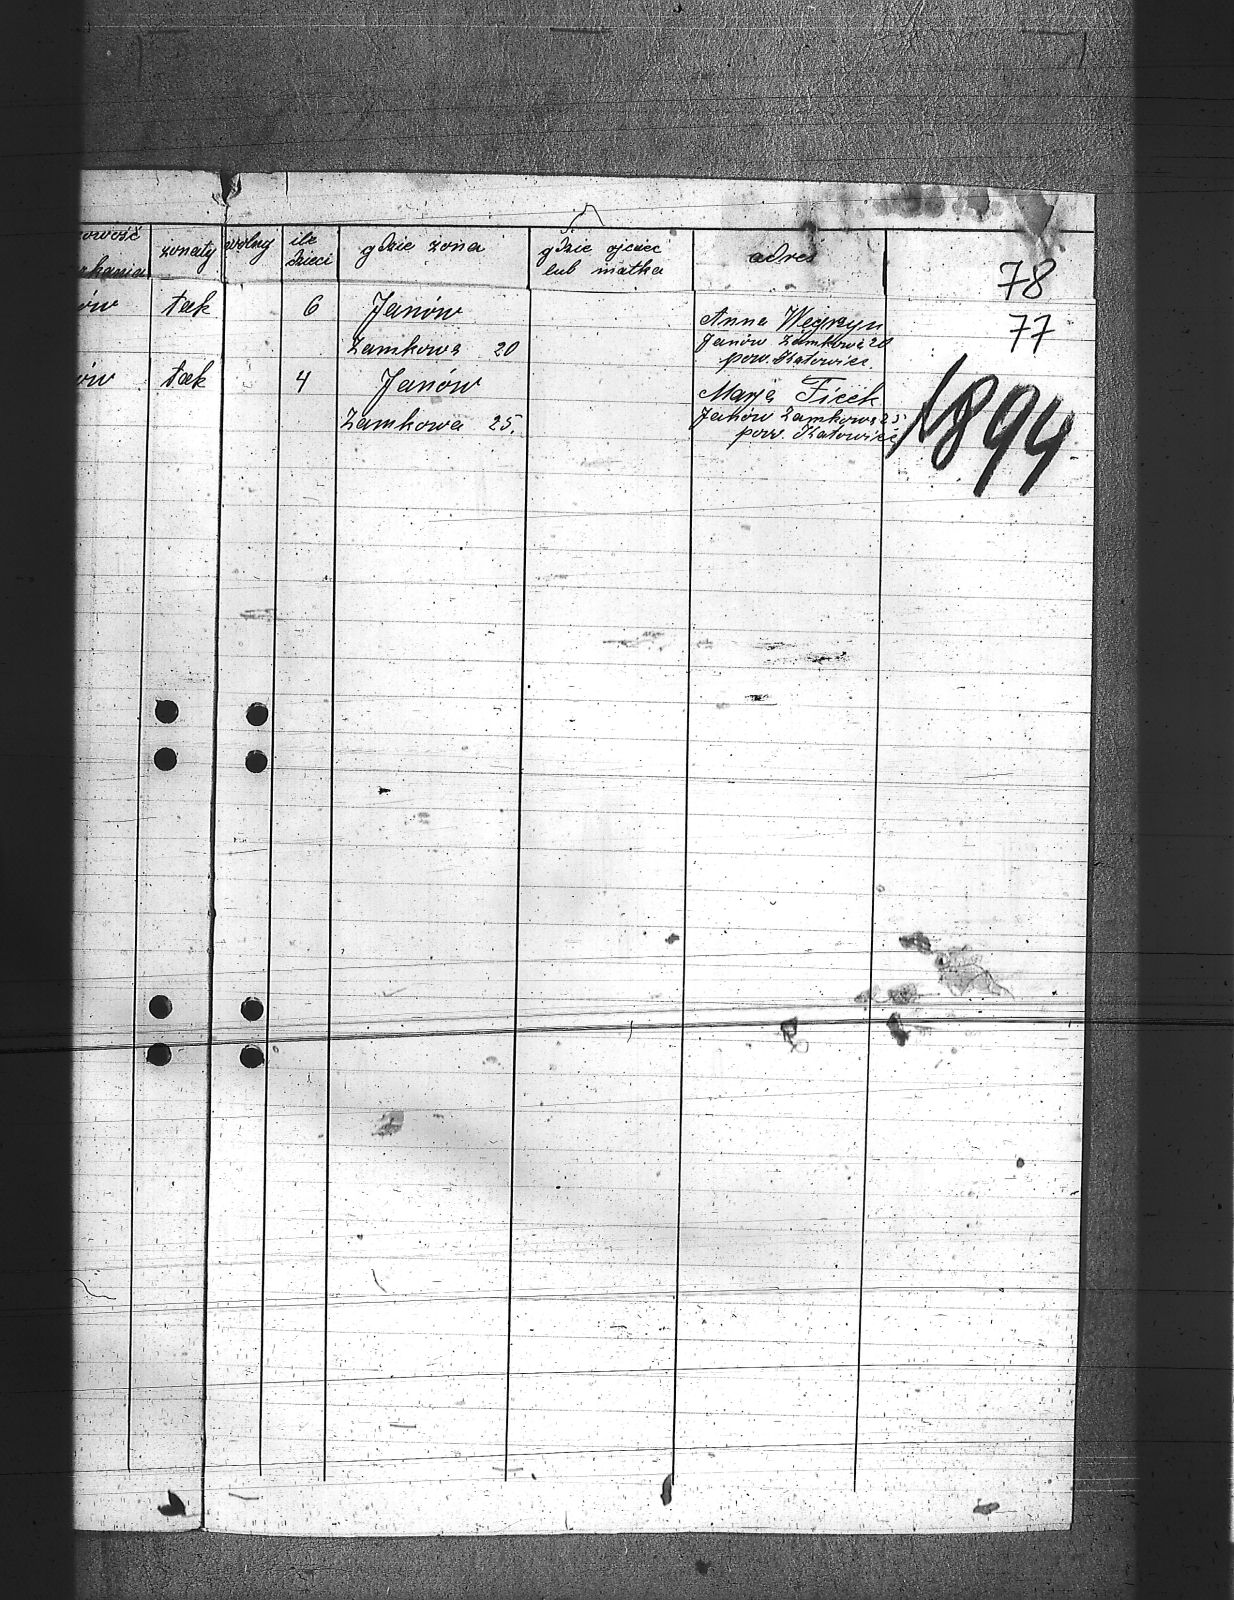 żonaty wolny ile dzieci gdzie żona gdzie ojciec lub matka adres
78
77
tak 6 Janów Anna Węgrzyn
Zamkowa 20 Janów Zamkowa 20
pow. Katowice.
tak 4 Janów Marja Ficek
Zamkowa 25. Janów Zamkowa 25
pow. Katowice
1894